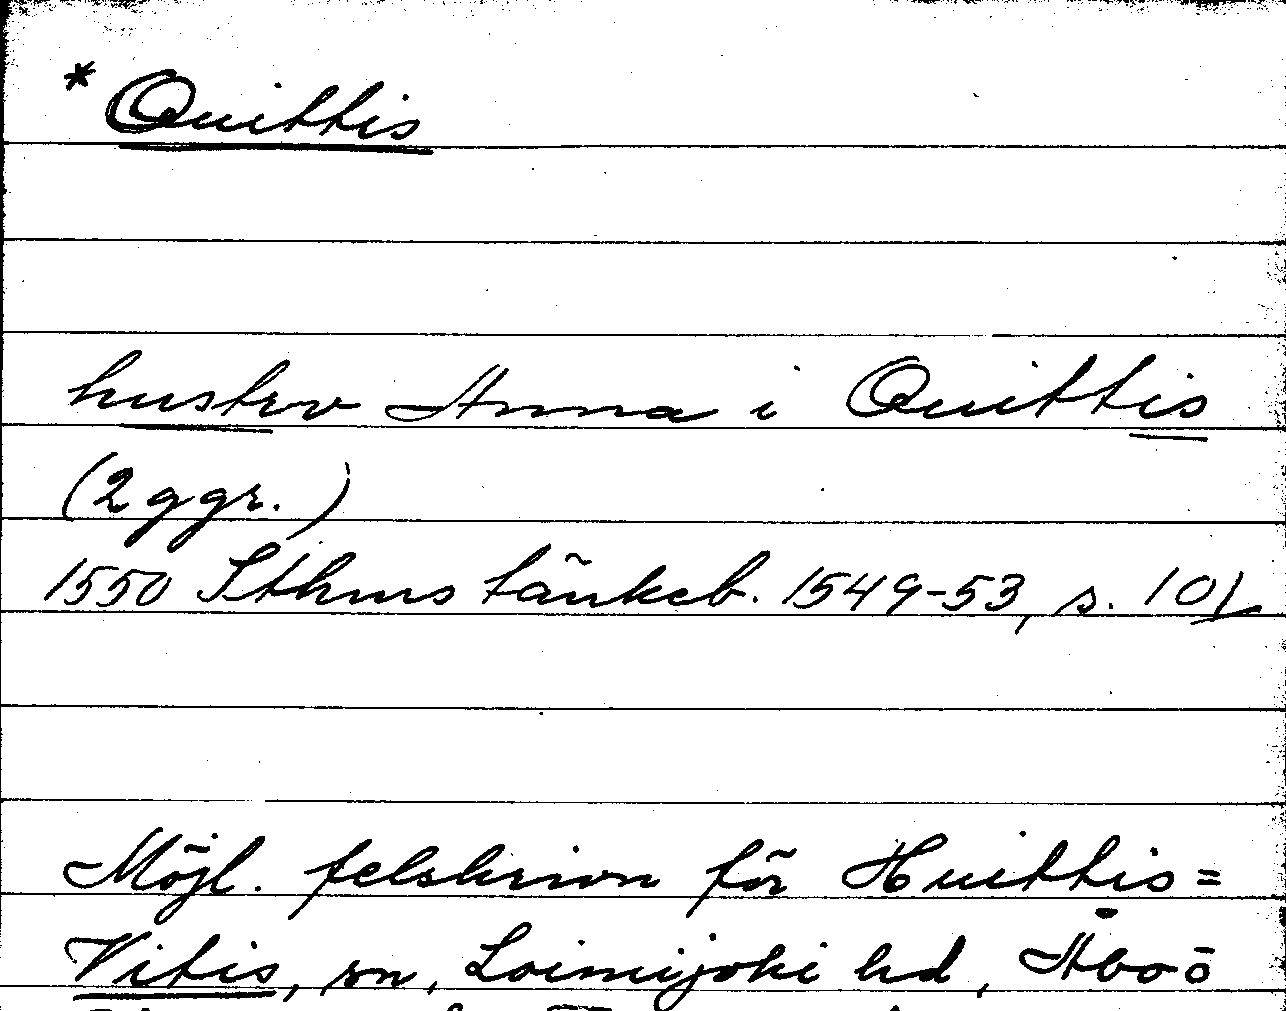 * Quittis
hustrv Anna i Quittis
(2 ggr.)
1550 Sthms tänkeb. 1549-53, s. 101
Möjl. felskrivn för Huittis=
Vitis, sn, Loimijoki hd, Åbo o